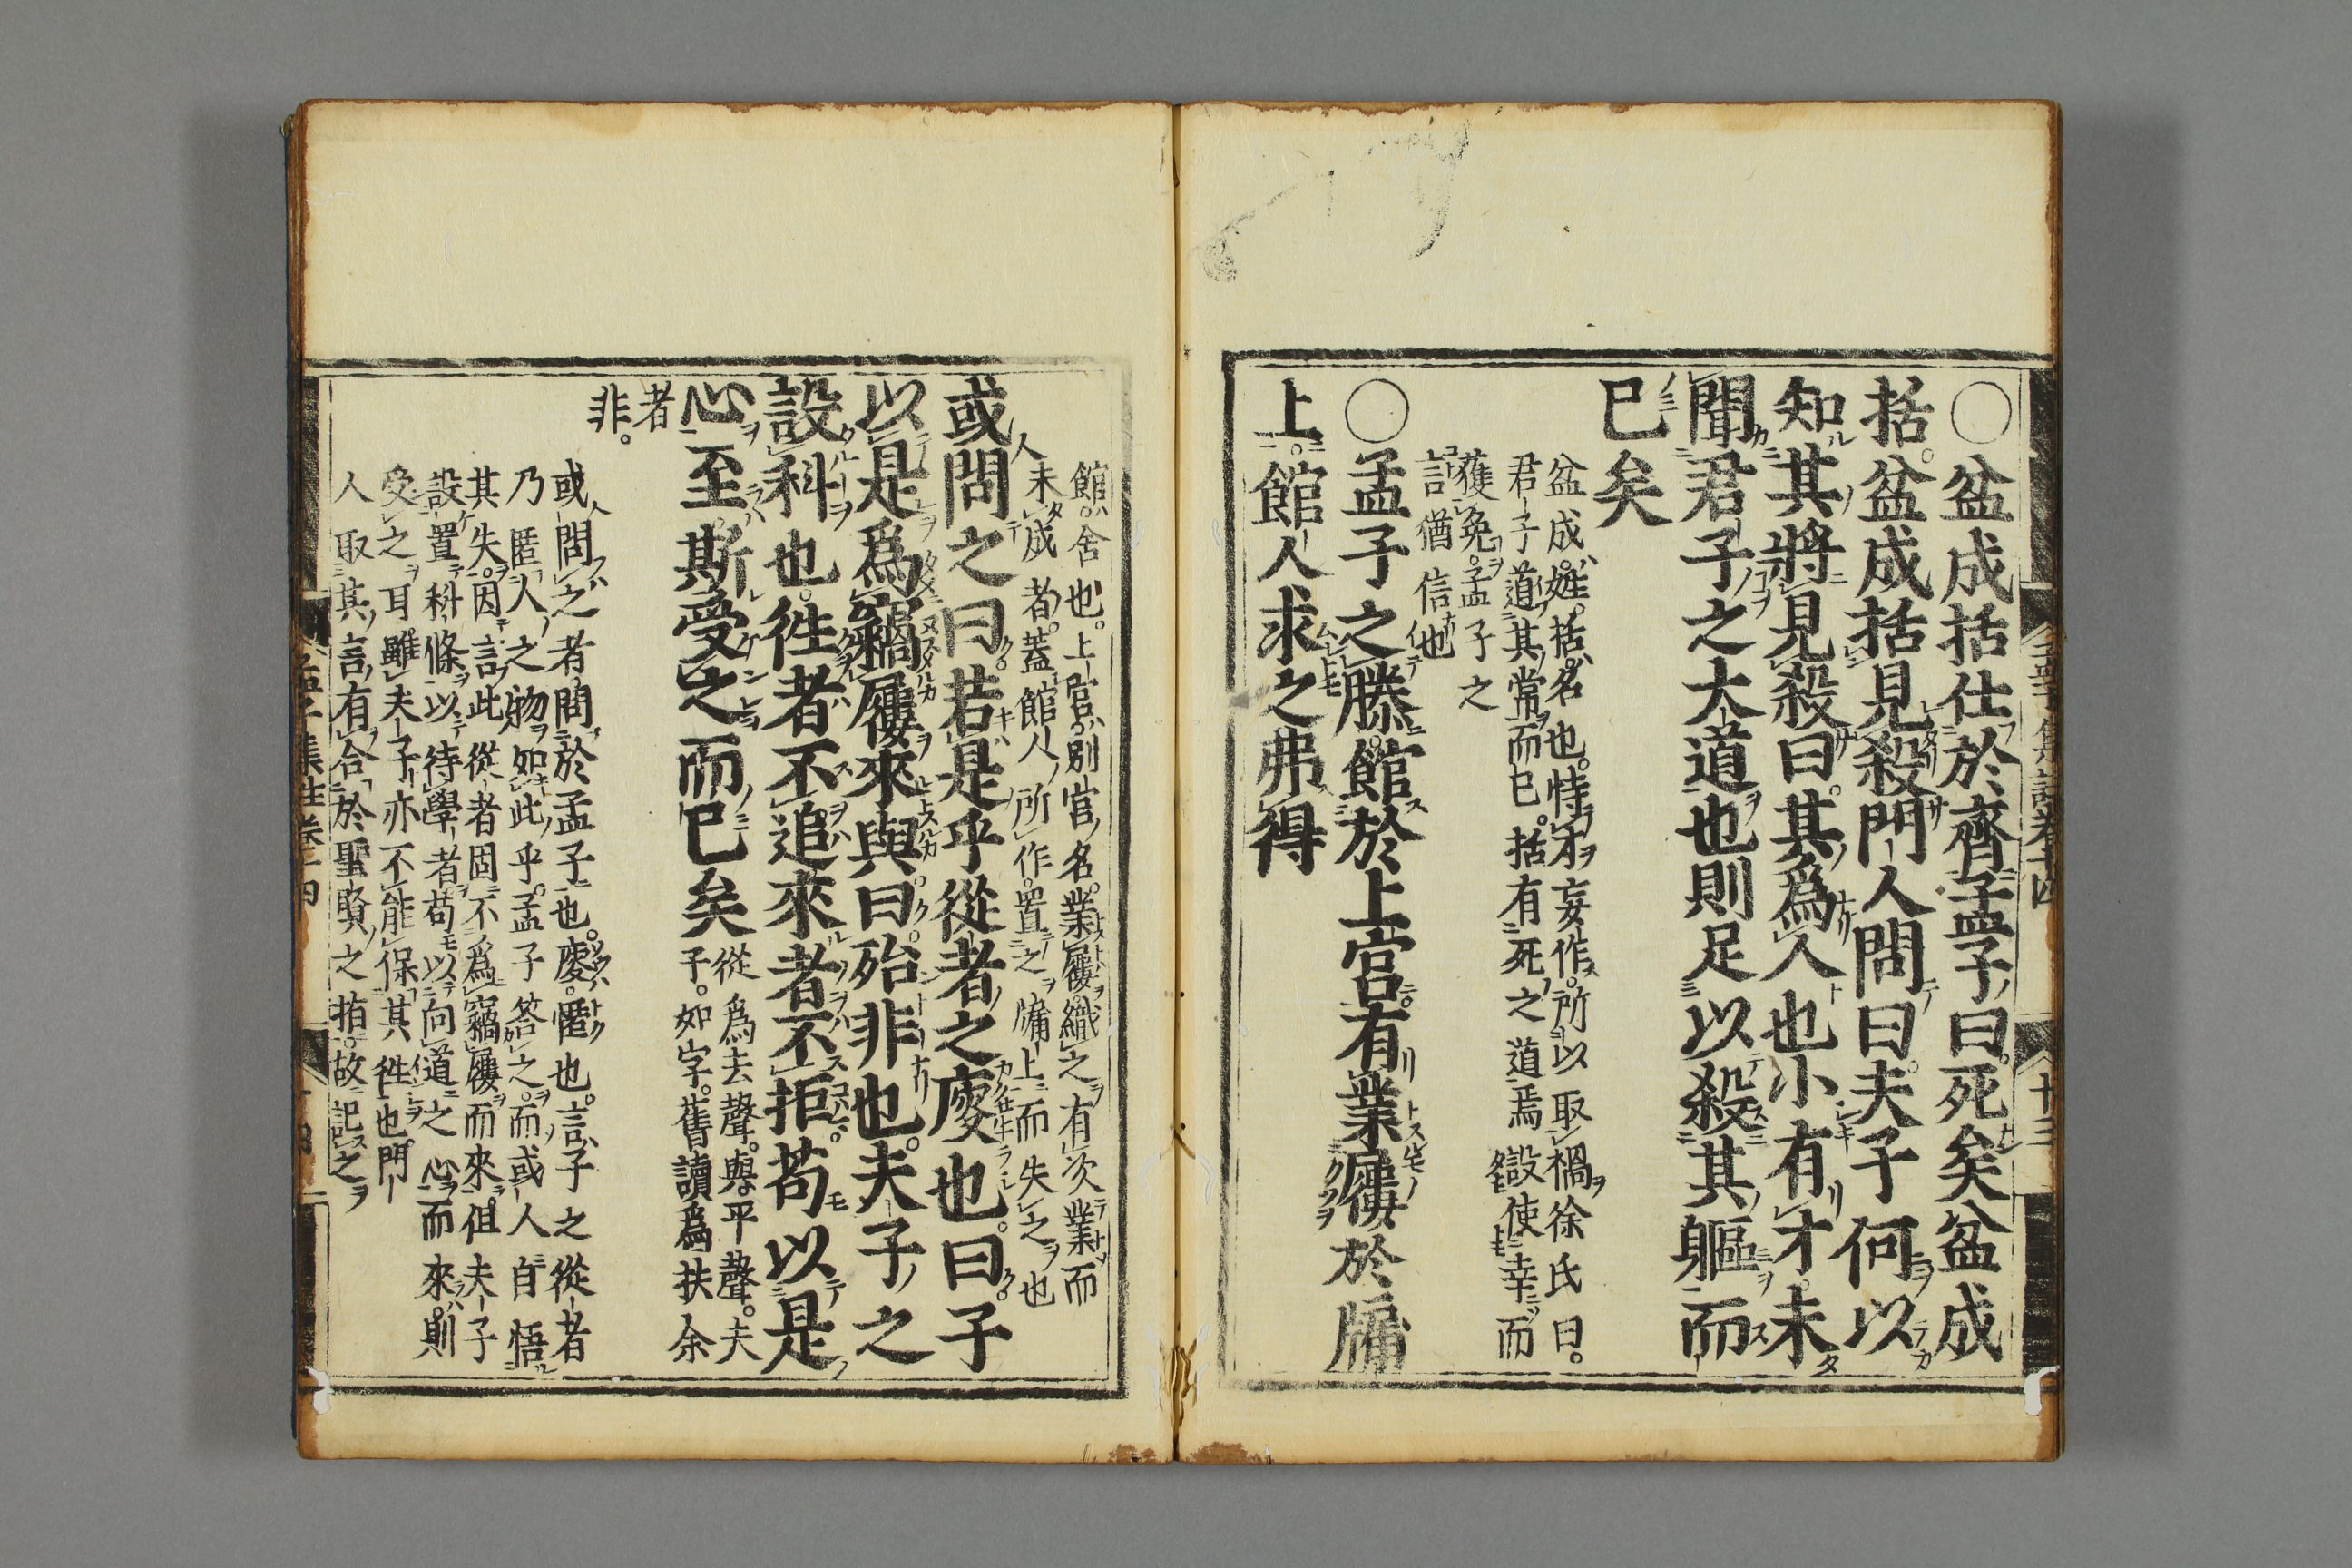 ○盆成括仕於齊孟子曰死矣盆成
括盆成括見殺門人問曰夫子何以
知其將見殺曰其為人也小有才未
聞君子之大道也則足以殺其軀而
已矣
盆成姓括名也恃才妄作所以取禍徐氏曰
君子道其常而已括有死之道焉設使幸而
獲免孟子之
言猶信也
○孟子之滕館於上宮有業屨於牖
上館人求之弗得
館舍也上宮別宮名業屨織之有次業而
未成者蓋館人所作置之牖上而失之也
或問之曰若是乎從者之廋也曰子
以是爲竊屨來與曰殆非也夫子之
設科也往者不追來者不拒苟以是
心至斯受之而已矣
從爲去聲與平聲夫
子如字舊讀爲扶余
者
非
或問之者問於孟子也廋匿也言子之從者
乃匿人之物如此乎孟子答之而或人自悟
其失因言此從者固不爲竊屨而來但夫子
設置科條以待學者苟以向道之心而來則
受之耳雖夫子亦不能保其往也門
人取其言有合於聖賢之指故記之
孟子集註卷十四 十三
孟子集註卷十四 十四